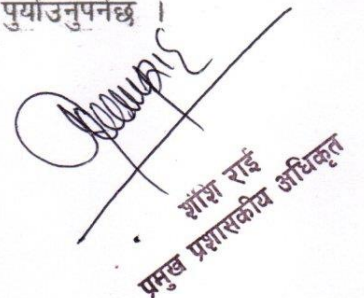 पुर्याउनुपर्नेछ ।
शशि राई
प्रमुख प्रशासकीय अधिकृत